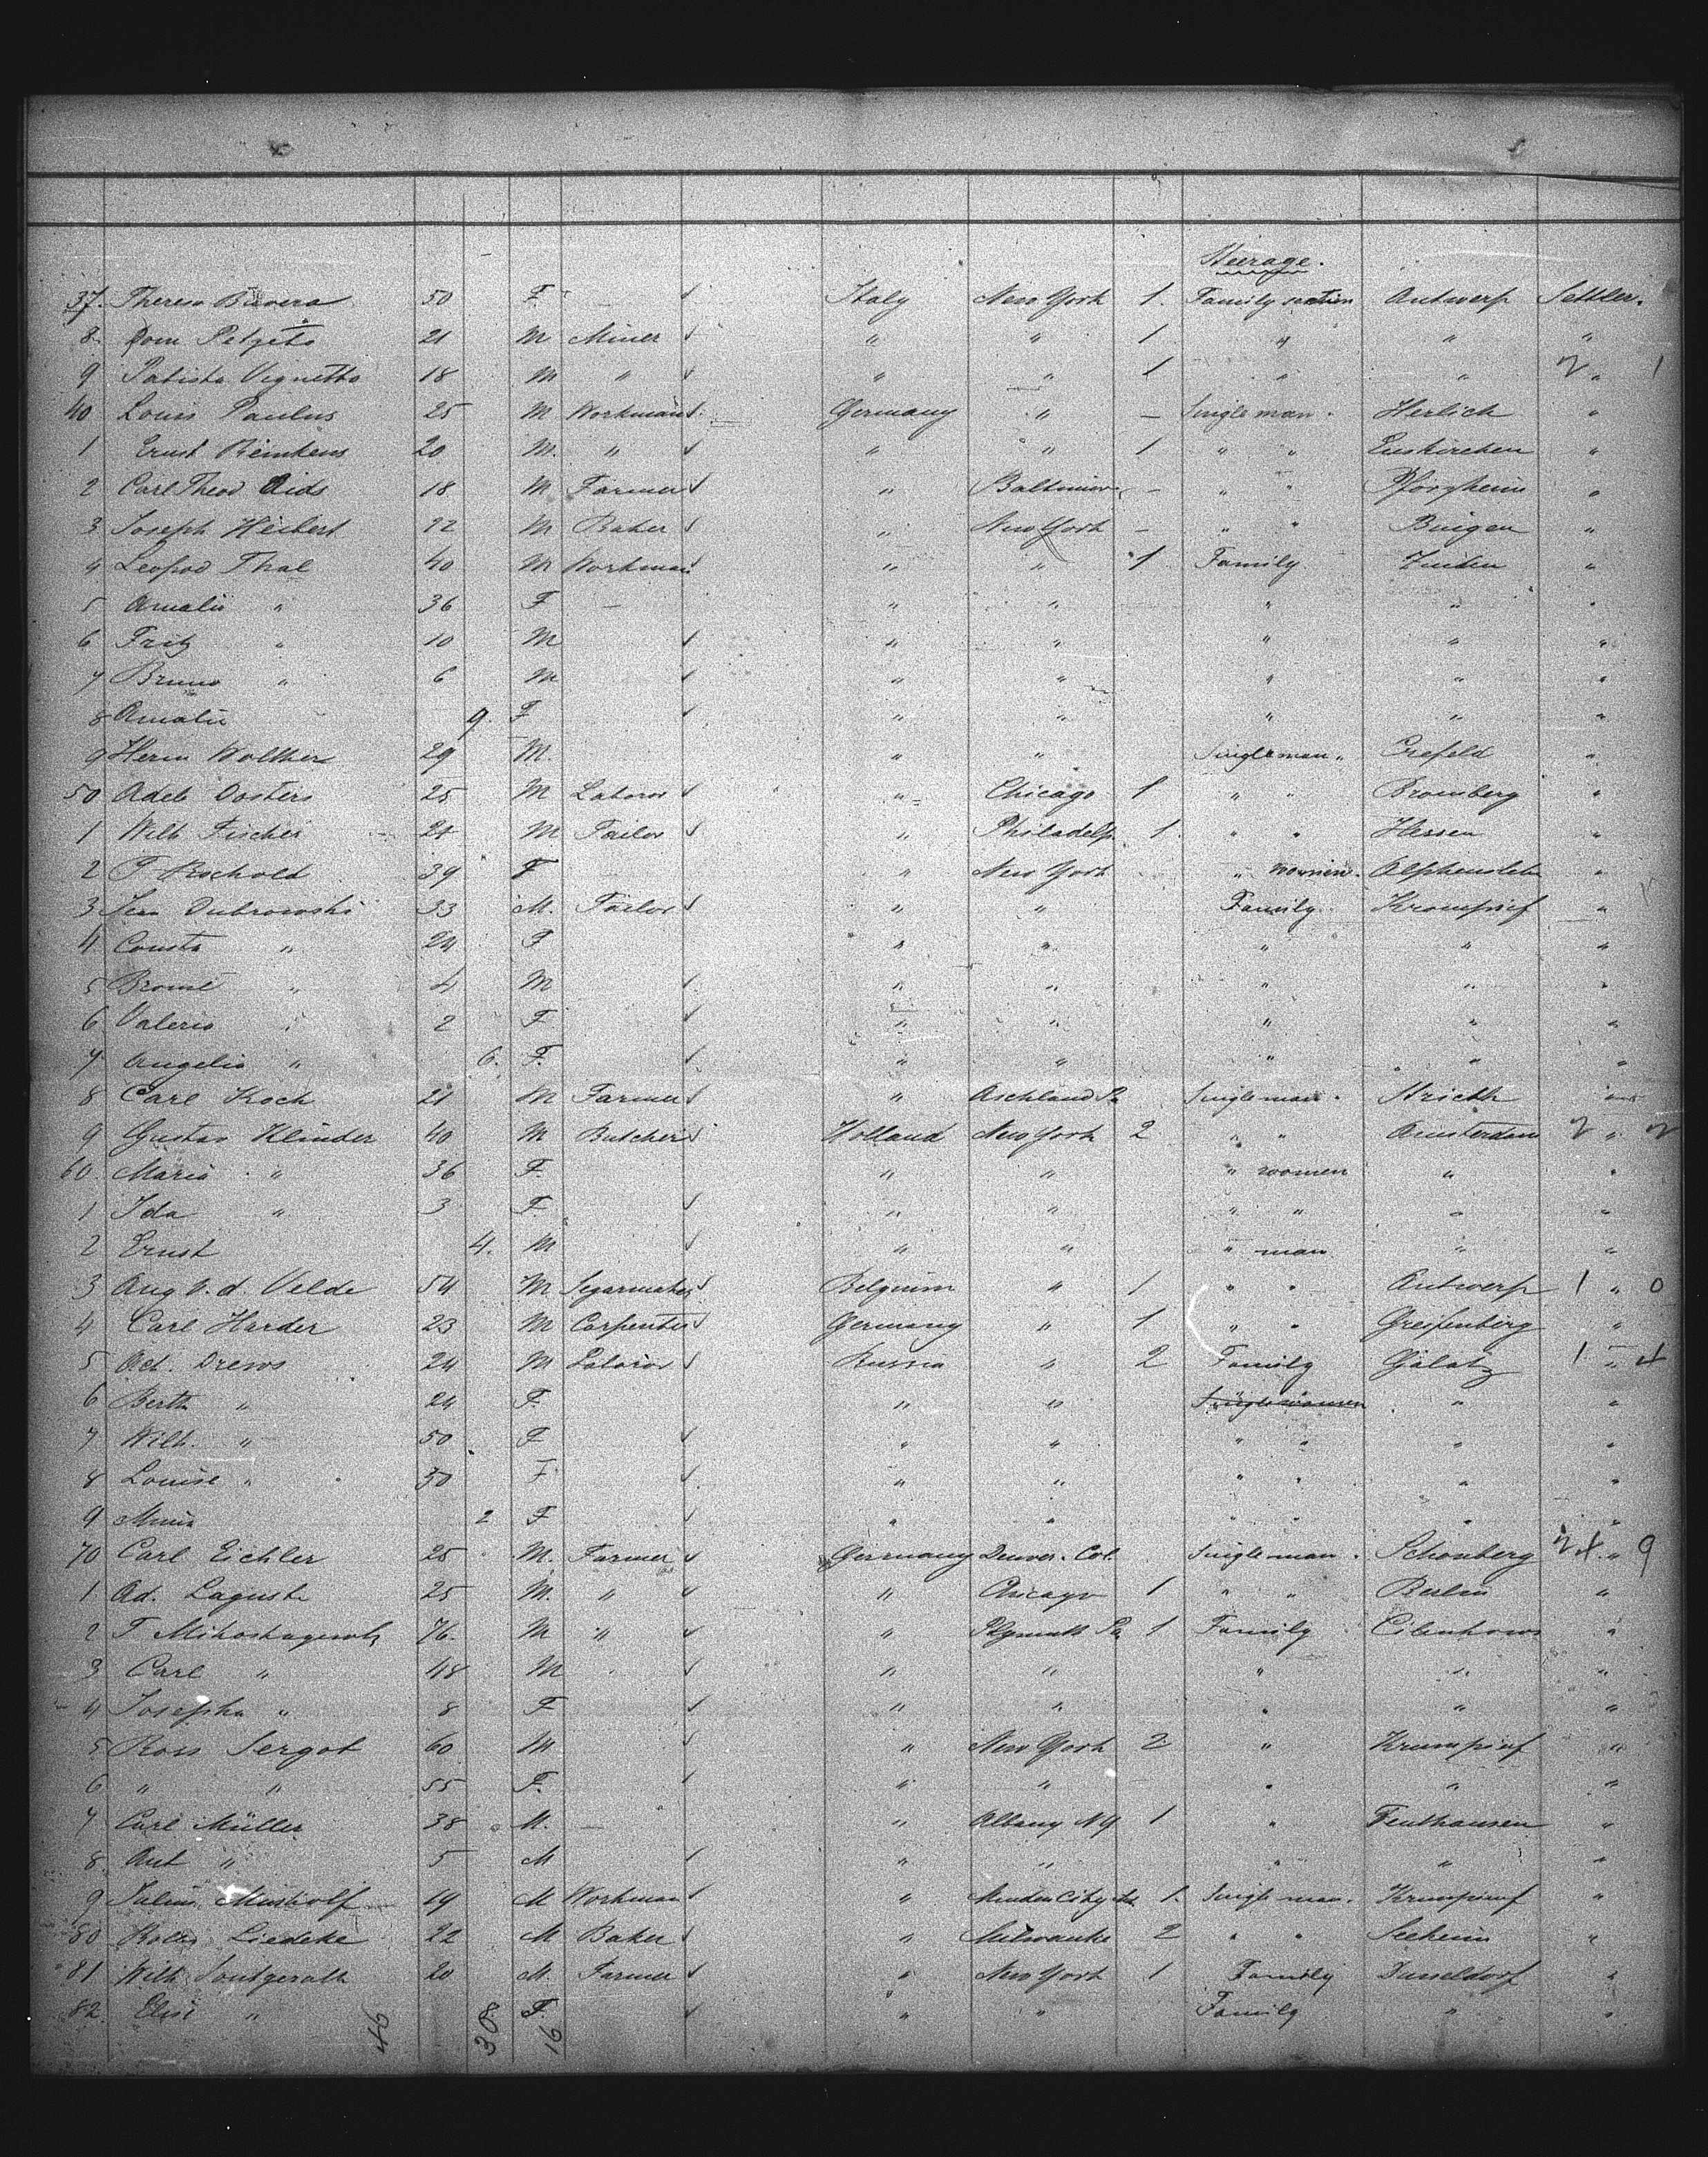 Steerage.
37. Theresa Bavera 50 F. Italy New York 1. Family section Antwerp Settler.
8. Dom Petzeto 21 M Miner " " 1 " " "
9 Batista Vignetto 18 M " " " 1 " " 2 " 1
40 Louis Paulus 25 M Workman Germany " — Single man. Herlich "
1 Ernst Reinkens 20 M. " " " 1 " " Euskirchen "
2 Carl Theod 18 M Farmer " Baltimore — " " Pforzheim "
3 Joseph Heibert 22 M Baker " New York — " " Bingen "
4 Leopod Thal 40 M Workman " " 1 Family "
5 Amalie " 36 F — " " " " "
6 Fritz " 10 M " " " " "
7 Bruno " 6 M " " " " "
8 Amalie 9. F " " " " "
9 Herm Wolther 29 M. " " Single man " Crefeld "
50 Adel Oosters 25 M Labourer " Chicago 1 " " Bromberg "
1 Wilh Fischer 24 M. Tailor " Philadelp. 1. " " Hessen "
2 39 F " New York " women. "
3 Dubrowski 33 M. Tailor " " Family "
4 Consta " 24 F " " " " "
5 " 4 M " " " " "
6 Valeria " 2 F " " " " "
7 Angelia " 6. F. " " " " "
8 Carl Koch 21 M Farmer " Aschland Pa Single man. "
9 Gustav Klinder 40 M Butcher Holland New York 2 " " Amsterdam 2 " 2
60. Maria " 36 F. " " " women " "
1 Ida " 3 F. " " " " " "
2 Ernst 4. M " " " man " "
3 Aug v. d. Velde 54 M Segarmaker Belgium " 1 " " Antwerp 1 " 0
4 Carl Harder 23 M Carpenter Germany " 1 " " Greifenberg "
5 Ad. Drews 24 M Laborer Russia " 2 Family Galatz 1 " 4
6 Berth " 24 F. " " Single women " "
7 Wilh. " 50 F " " " " " "
8 Louise " 30 F " " " " " "
9 2 F " " " " " "
70 Carl Eichler 25 M. Farmer Germany Denver. Col. Single man. Schonberg 24 " 9
1 Ad. 25 M. " " Chicago 1 " " Berlin "
2 76. M " " Plymouth Pa 1 Family "
3 Carl " 48 M " " " " " "
4 Josepha " 8 F " " " " "
5 Ross Sergot 60 M " New York 2 " "
6 " " 55 F. " " " " "
7 Carl Müller 38 M. — " Albany NY 1 " "
8. Ant " 5 M " " " " "
9 Julius 19 M Workman " 1. Single man. "
80 Liedeke 22 M Baker " Milwauke 2 " " Seeheim "
81 Wilh Sontgerath 20 M. Farmer " New York 1 Family Dusseldorf "
82. Elise " F. " " Family " "
46 38 8 16